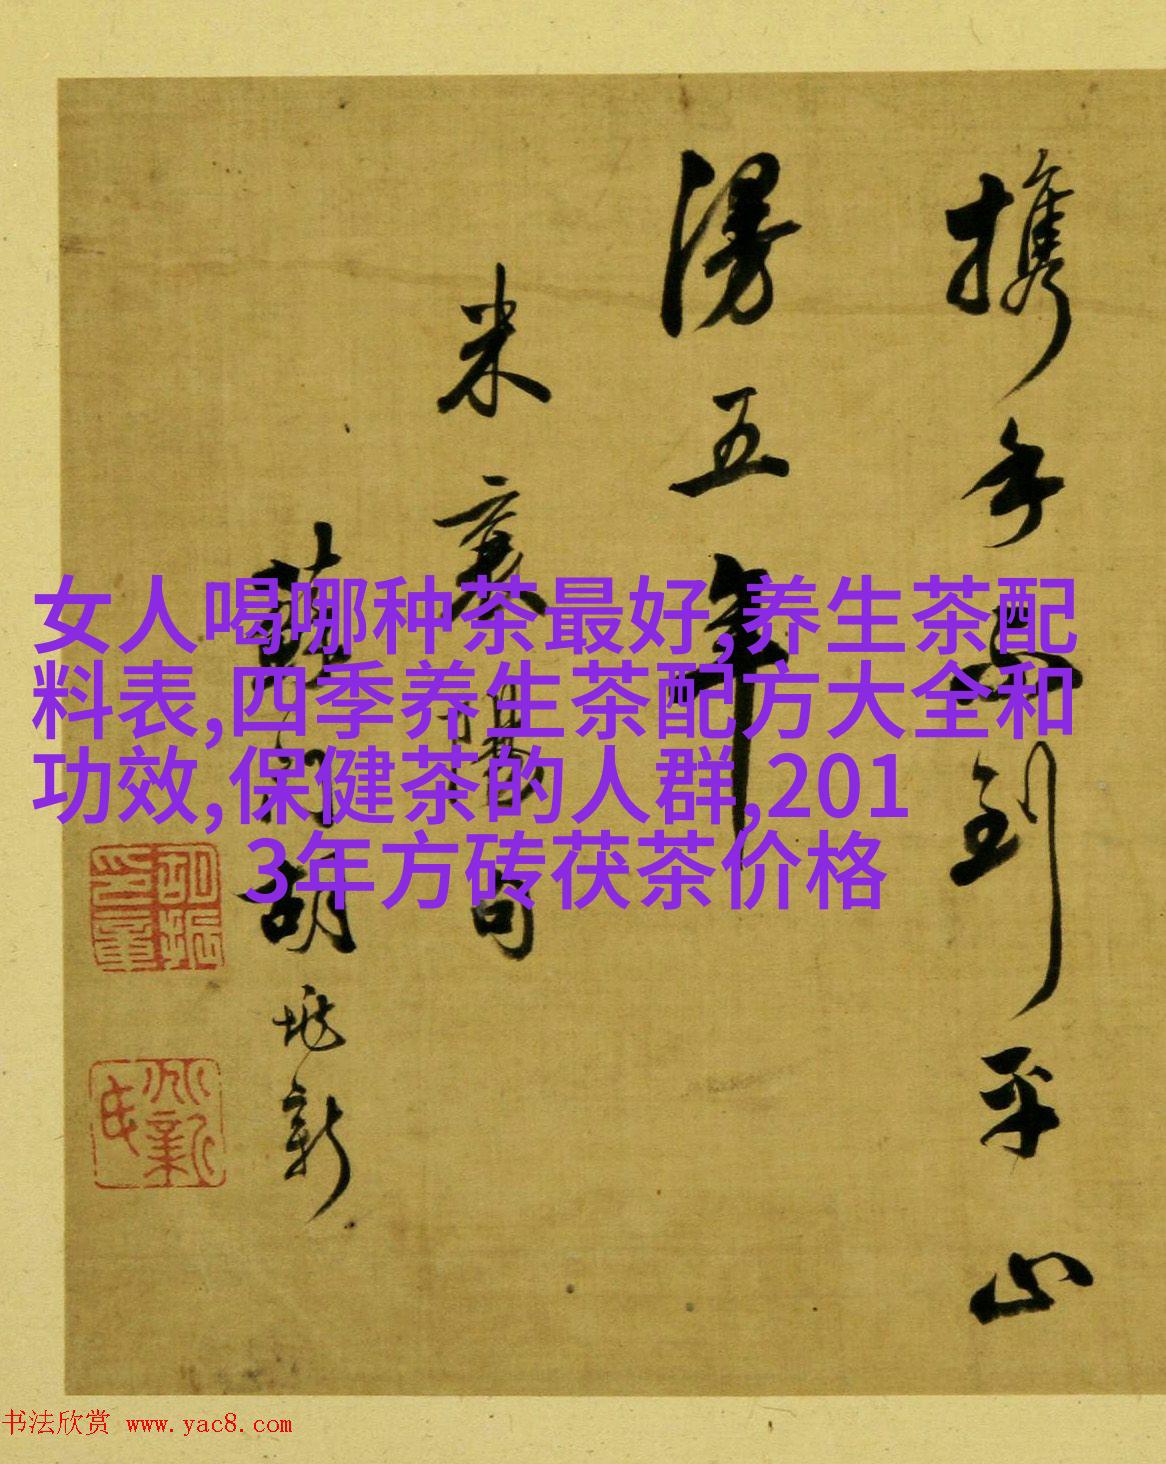 携手
到平山
漫五年
米襄阳句
胡兆新
女人喝哪种茶最好,养生茶配
料表,四季养生茶配方大全和
功效,保健茶的人群,201
3年方砖茯茶价格
书法欣赏 www.yac8.com